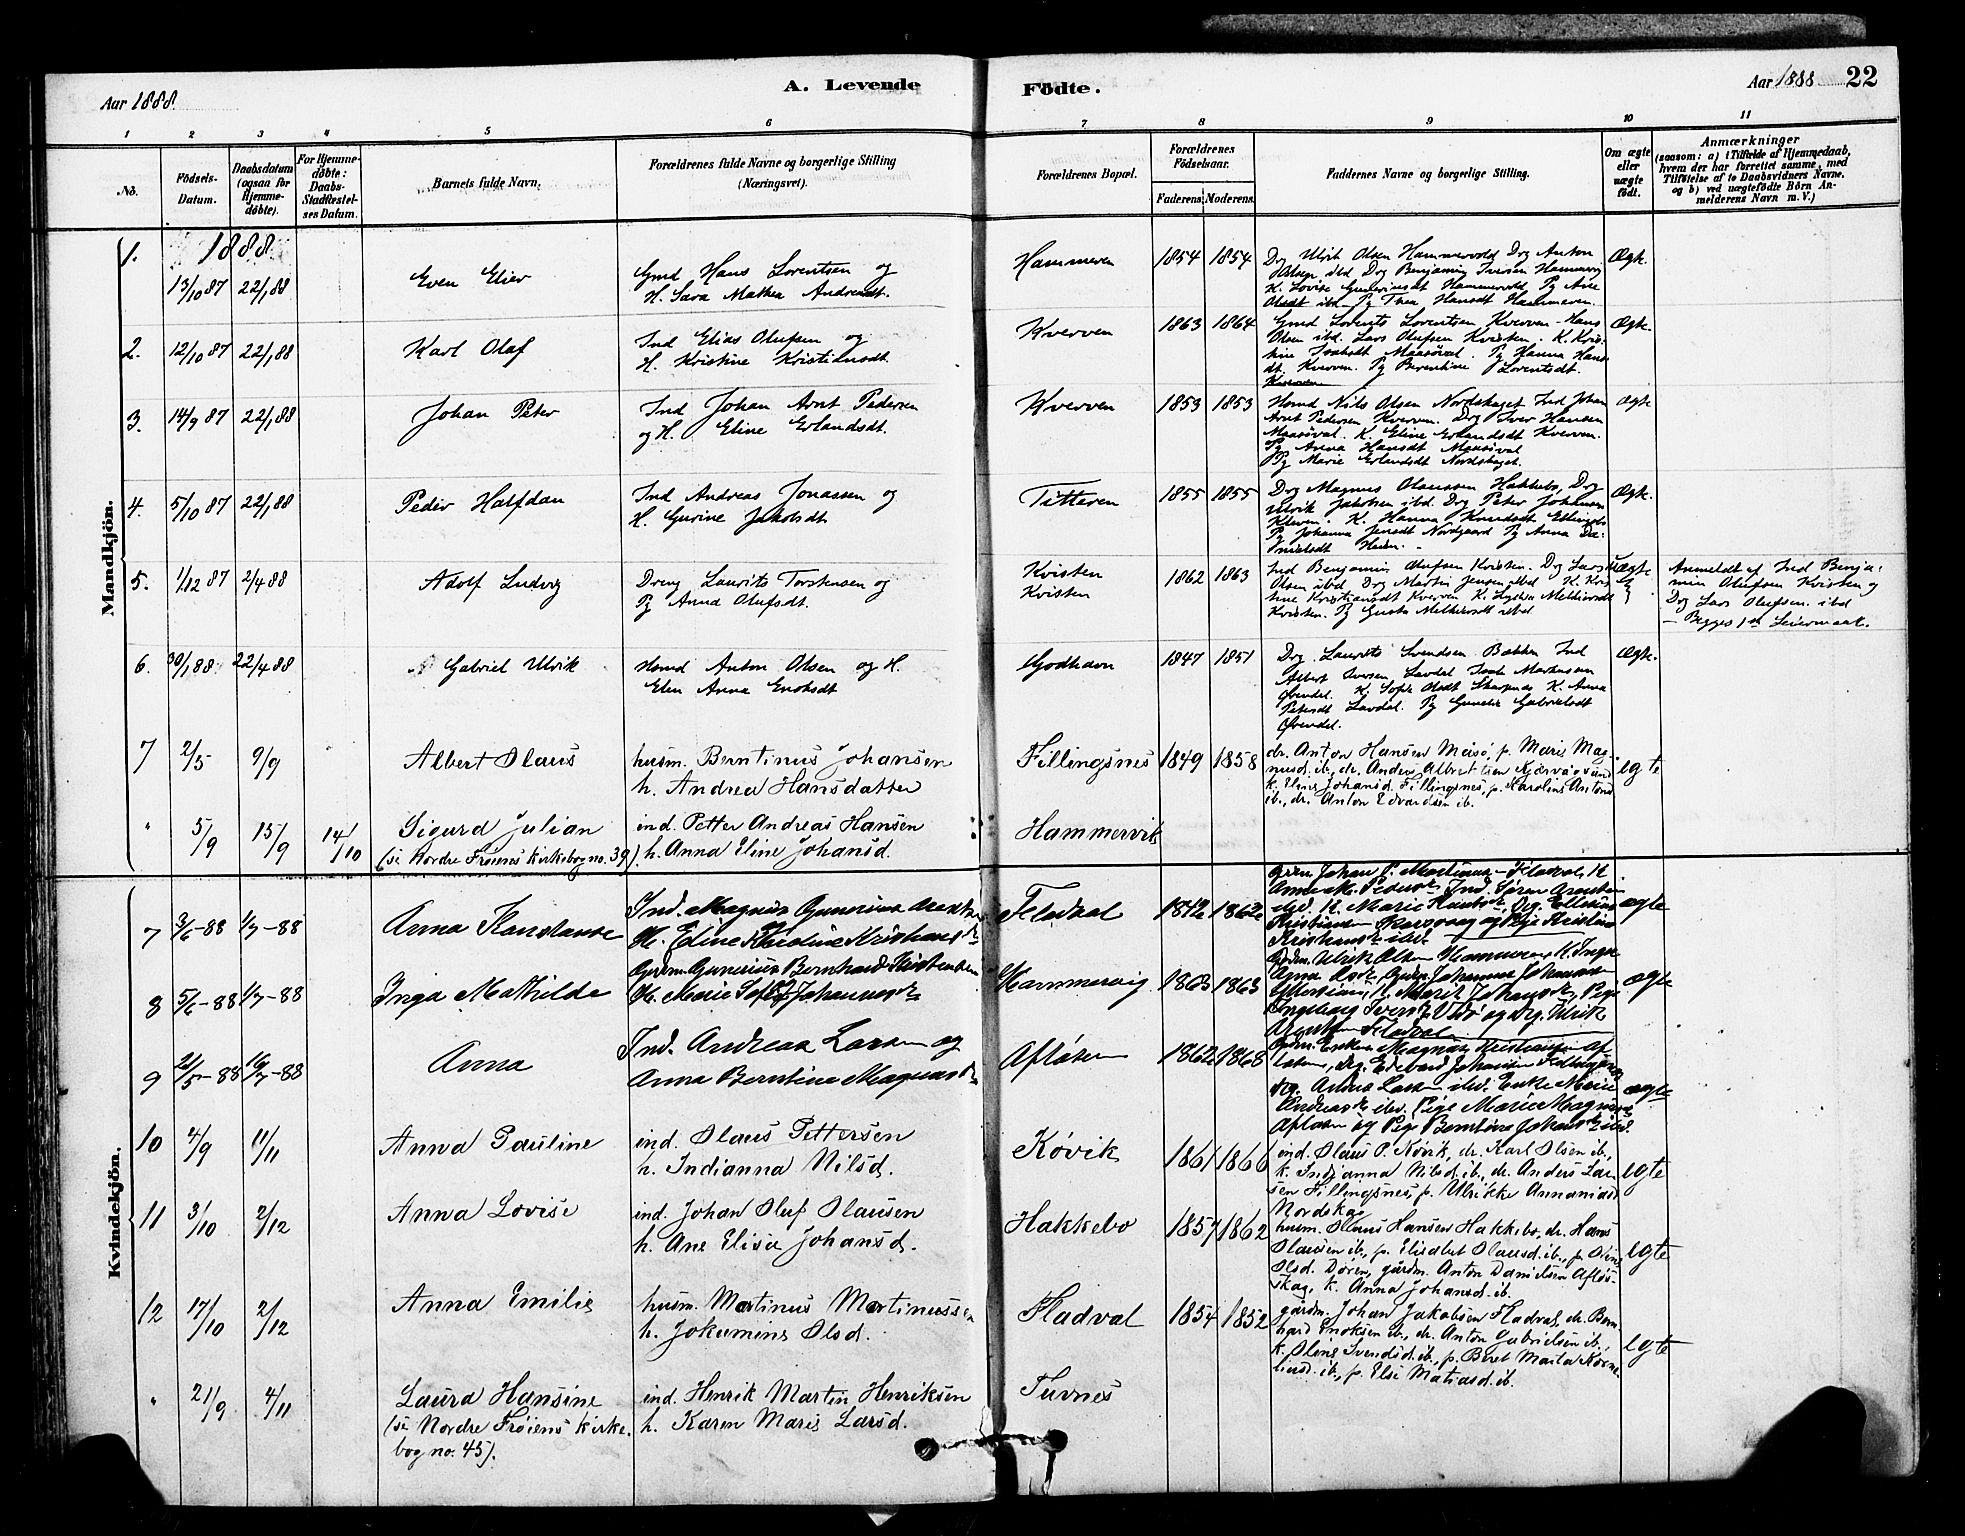 Aar 1888.
A. Levende
Födte.
Aar 1888
22
1 2 3 4 5 6 7 8 9 10 11
No.
Födsels-
Datum.
Daabsdatum
(ogsaa for
Hjemme-
døbte).
For Hjemme-
døbte:
Daabs-
Stadfestel-
ses Datum.
Barnets fulde Navn.
Forældrenes fulde Navne og borgerlige Stilling
(Næringsvei).
Forældrenes Bopæl.
Forældrenes
Födselsaar.
Faderens. Moderens.
Faddernes Navne og borgerlige Stilling.
Om ægte
eller
uægte
født.
Anmærkninger
(saasom: a) i Tilfælde af Hjemmedaab,
hvem der har forrettet samme, med
Tilføielse af to Daabsvidners Navne,
og b) ved uægtefødte Børn An-
melderens Navn m. V.)
Mandkjön.
1888
1. 13/10 87 22/1 88 Even Elier
Gmd Hans Lorentsen og
H. Sara Mathea Andreasdt.
Hammeren 1854 1854
Drg Ulrik Olsen Hammervold Drg Anton
Olsen ibd Drg Benjamin Iversen
K. Lovise Hammervold Pg Ane
Olsdt ibd Pg Thea Hansdt Hammeren.
Ægte.
2. 12/10 87 22/1 88 Karl Olaf
Ind Elias Olufsen og
H. Kristine Kristiansdt
Kverven 1863 1864
Gmd Lorents Lorentsen Kverven Hans
Olsen ibd. Lars Olufsen Kvisten. K. Kris-
tine Maasøval. Pg Hanna Hans-
dt. Kverven. Pg Berentine Lorentsdt.
Kverven
Ægte.
3. 14/9 87 22/1 88 Johan Peter
Ind Johan Arnt Pedersen
og H. Eline Erlandsdt.
Kverven 1853 1853
Hsmd Nils Olsen Nordskaget Ind Johan
Arnt Pedersen Kverven. Drg Iver Hansen
Maasøval. K. Eline Erlandsdt Kverven.
Pg Anna Hansdt Maasøval
Pg Marie Erlandsdt Nordskaget.
Ægte
4. 5/10 87 22/1 88 Peder Halfdan
Ind Andreas Jonassen og
H. Gurine Jakobsdt
Titteren 1855 1855
Drg Magnus Olaussen Hakkebo, Drg
Ulrik Jakobsen ibd. Drg Peter Johansen
K. Hanna Knudsdt
Pg Johanna Jensdt Nordgaard Pg Anna Da-
nielsdt
Ægte.
5. 1/12 87 2/4 88 Adolf Ludvig
Dreng Laurits Torstensen og
Pg Anna Olufsdt.
Kvisten
Kvisten
1862 1863
Ind Benjamin Olufsen Kvisten. Drg Lars
Olsen ibd Drg Martin Jensen ibd K. Kris-
tine Kristiansdt Kverven K. Melkiorsdt
Kvisten. Pg Gusta Melkiorsdt ibd
Uægte
Anmeldt af Ind Benja-
min Olufsen Kvisten og
Drg Lars Olufsen. ibd
— Begges 1ste Leiermaal.
6. 30/1 88 22/4 88 Gabriel Ulrik
Hsmd Anton Olsen og H.
Elen Anna Enoksdt
Godhavn 1847 1851
Drg. Laurits Svendsen Bakken Ind
Albert Iversen Lavdal
K. Sofie Olsdt K. Anna
Petersdt Lavdal. Pg Gabrielsdt
Ægte.
7 2/5 9/9 Albert Olaus
husm. Berntinus Johansen
h. Andrea Hansdatter
Fillingsnes 1849 1858
dr. Anton Hansen Måsø, p. Marie Mag-
nusd. ib., dr. Anders Albertsen
k. Eline Johansd. Fillingsnes, p. Karoline Antonsd
ib., dr. Anton Edvardsen ib.
egte
" 5/9 15/9 14/10 Sigurd Julian
(se Nordre Frøiens kirkebog no. 39).
ind. Petter Andreas Hansen
h. Anna Eline Johansd.
Hammervik
Kvindekjön.
7 3/6-88 1/7-88 Anna Konstanse
Ind. Magnus Gunerius
H. Eline Nicoline Kristiansdt
Fladval 1842 1862
Grdm Johan P. Martinus Fladval, K
Anne M. Pedersdt Ind. Søren
ibd. K. Marie Drg. Ellesius
Kristiansen og Pige Kristine
Kristiansdt ibd.
ægte
8 5/6-88 1/7-88 Inga Mathilde
Grdm Gunerius Bernhard Kristensen
H. Marie Sofie Johannesdt
Hammervig 1863 1863
Grdm. Ulrik Olsen Hammeren, K. Inga
Anna Johannes Johansen
K. Marit Johansdt, Pige
Ingeborg Iversdt og drg. Ulrik
Fladval
ægte
9 21/5-88 16/7-88 Anna
Ind. Andreas Larsen og
Anna Berntine Magnusdt
Afløsen 1862 1868
Magnus Kristiansen Af-
løsen, drg. Edvard Johansen Fillingsnes
drg. Anton Larsen ibd. Enke Marie
Andreasdt ibd. Pige Marie Magnusdt
Afløsen og Pige Berntine Johansdt ibd.
ægte
10 4/9 11/11 Anna Pauline
ind. Olaus Pettersen
h. Indianna Nilsd.
Køvik 1861 1866
ind. Olaus P. Køvik, dr. Karl Olsen ib.,
k. Indjanna Nilsd. ib., dr. Anders Lar-
sen Fillingsnes, p. Ulrikke Annaniasd
Nordskag
egte
11 3/10 2/12 Anna Lovise
ind. Johan Oluf Olausen
h. Ane Elisa Johansd.
Hakkebo 1857 1862
husm. Olaus Hansen Hakkebo, dr. Hans
Olausen ib., p. Elisabet Olausd. ib., p. Oline
Olsd. Døren, gårdm. Anton Danielsen Afløs-
skag, k. Anna Johansd. ib.
egte
12 17/10 2/12 Anna Emilie
husm. Martinus Martinussen
h. Jokumine Olsd.
Fladval 1854 1852
gårdm. Johan Jakobsen Fladval, dr. Bern-
hard Enoksen ib., dr. Anton Gabrielsen ib.,
k. Oline Svendsd. ib., p. Beret Marta Korne-
liusd. ib., p. Else Matiasd. ib.
egte
" 21/9 4/11 Laura Hansine
(se Nordre Frøiens kirke-
bog no. 45).
ind. Henrik Martin Henriksen
h. Karen Marie Larsd.
Tuvnes